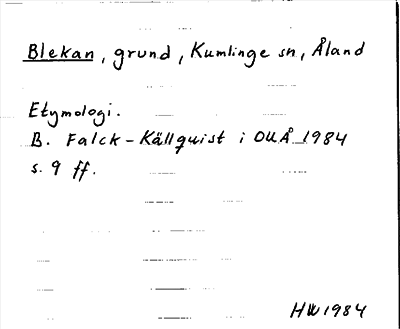 Blekan, grund, Kumlinge sn, Åland
Etymologi.
B. Falck-Källquist i OUÅ 1984
s. 9 ff.
HW 1984